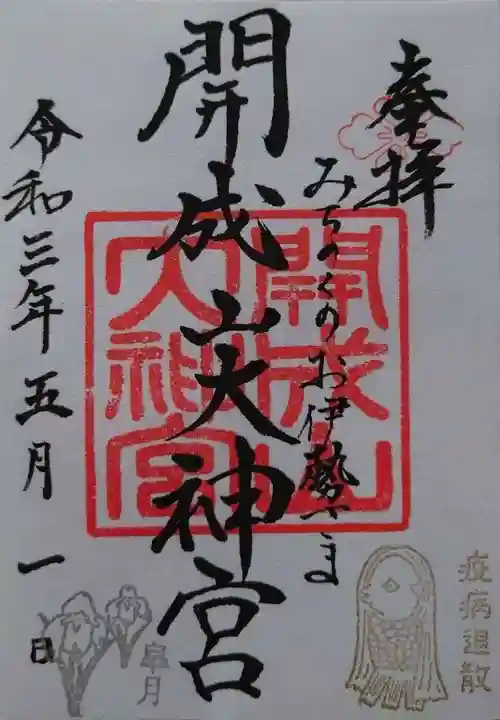 奉拝
みちのくのお伊勢さま
開成山大神宮
開成山大神宮
令和三年五月一日
疫病退散
皐月